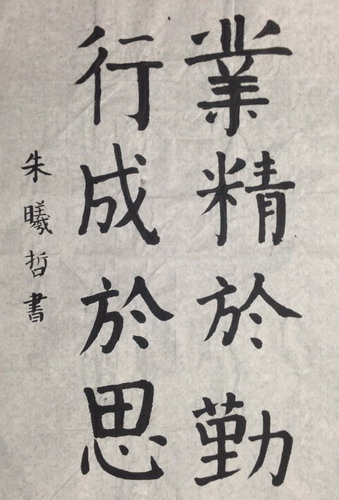 業精於勤
行成於思
朱曦哲書